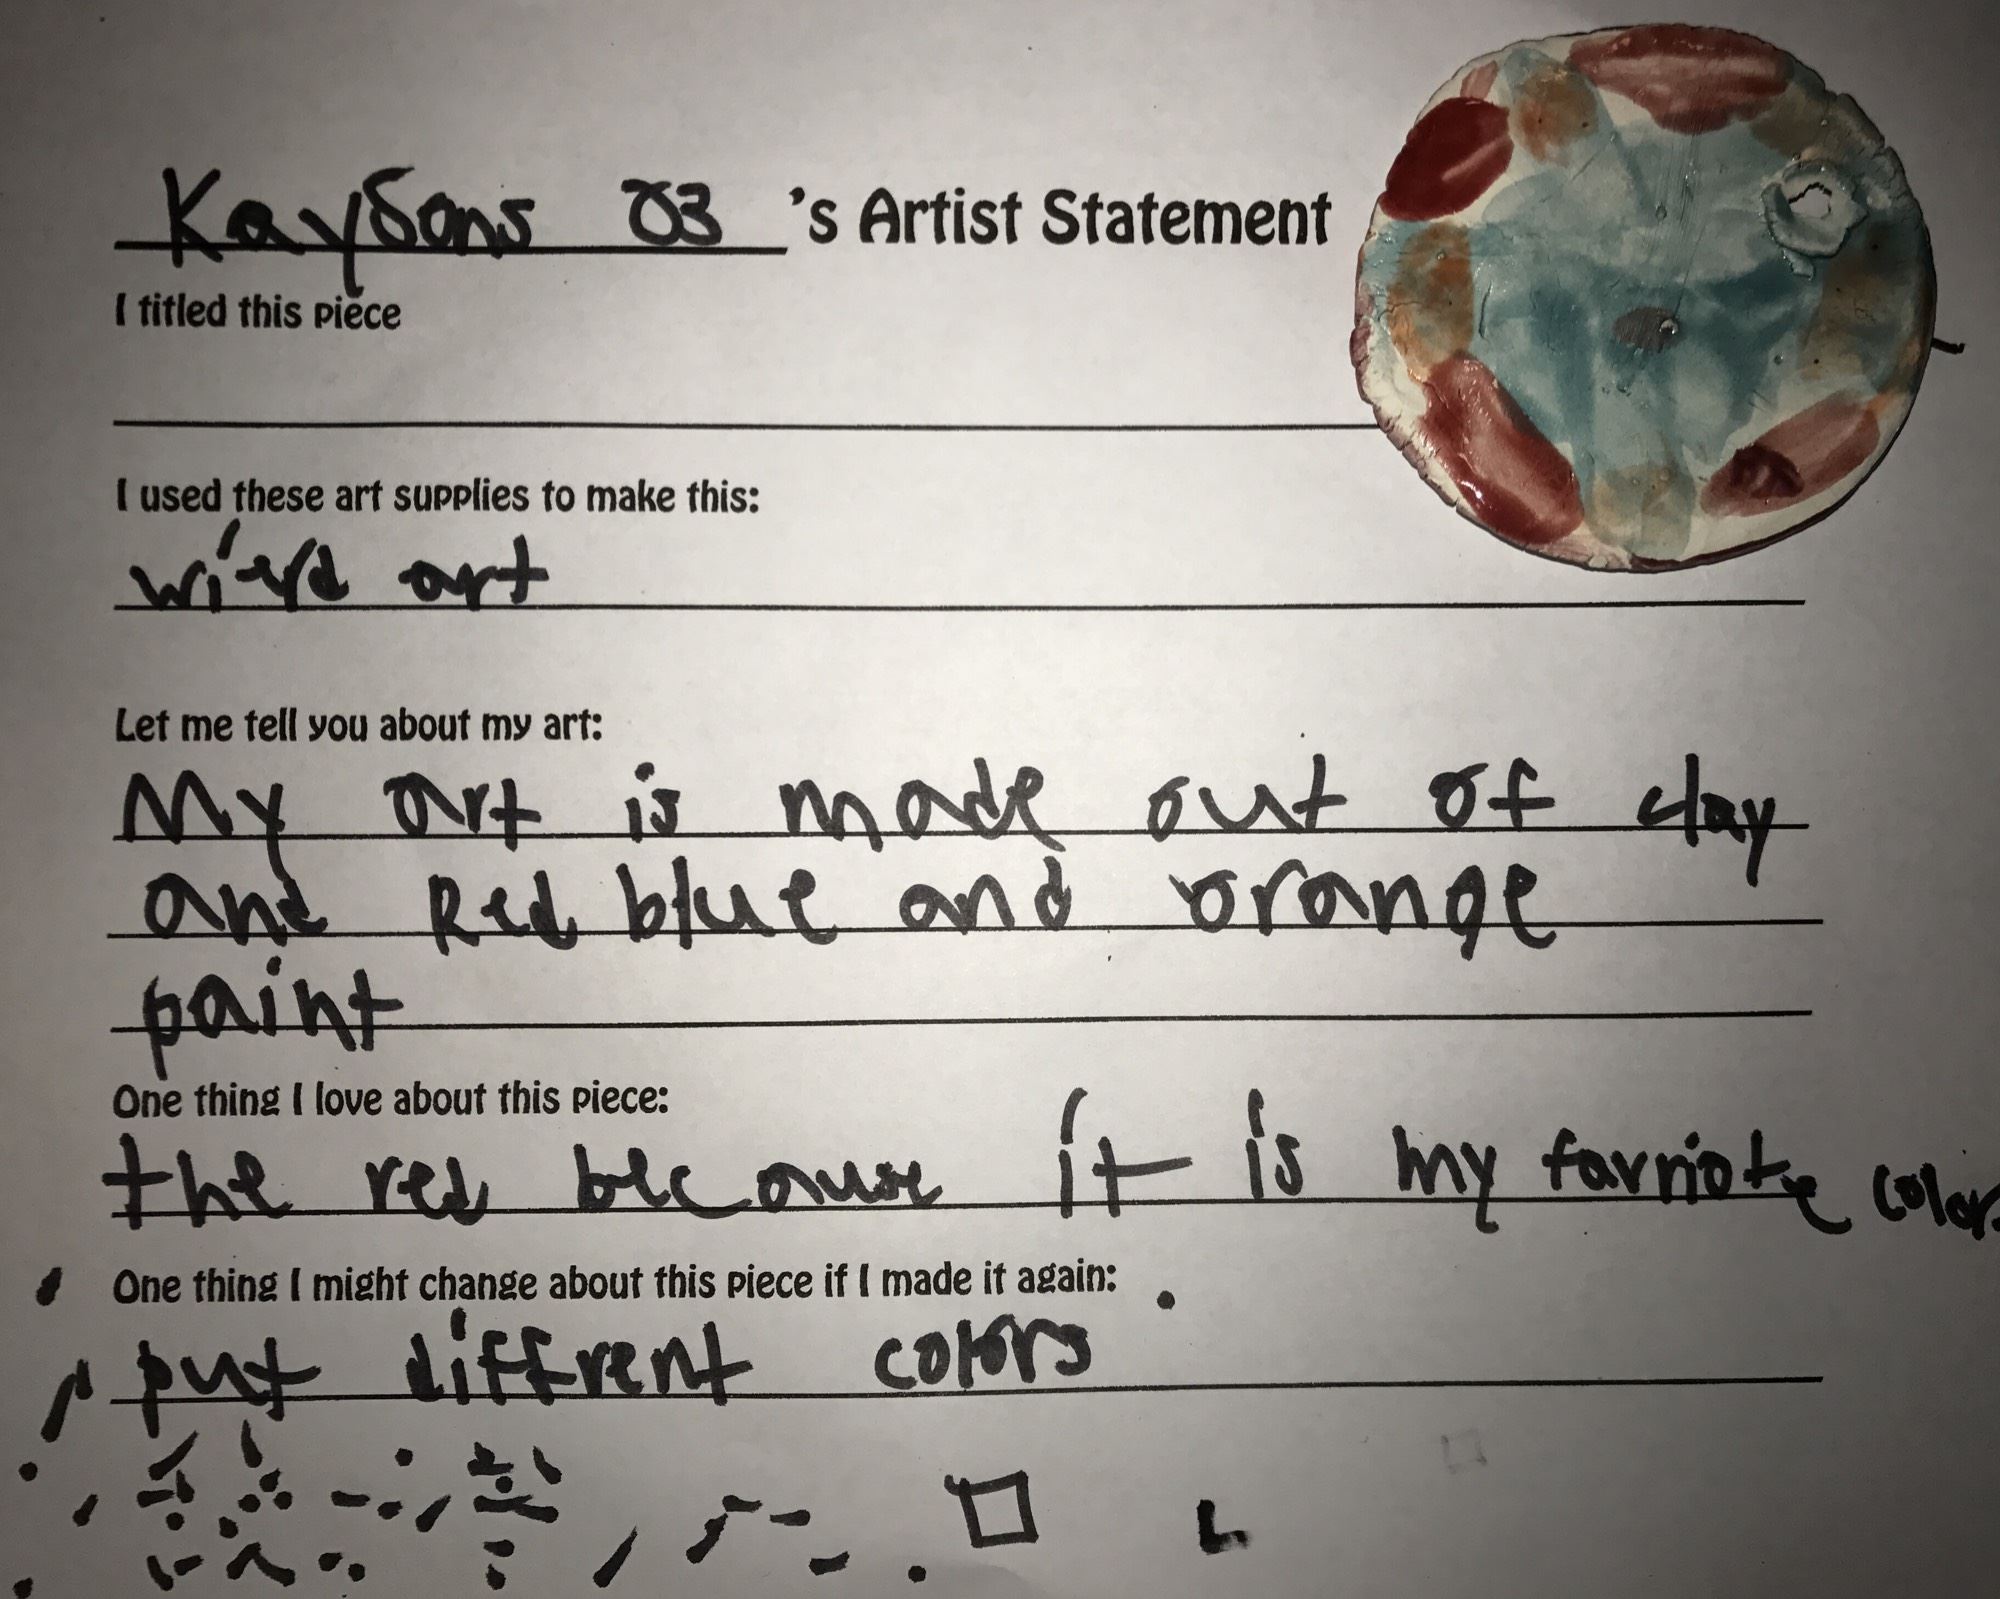 Kaysons 03 's Artist Statement
I titled this piece
I used these art supplies to make this:
wierd art
Let me tell you about my art:
My art is made out of clay
and Red blue and orange
paint
One thing I love about this piece:
the red because it is my favriote color.
One thing I might change about this piece if I made it again:
put diffrent colors